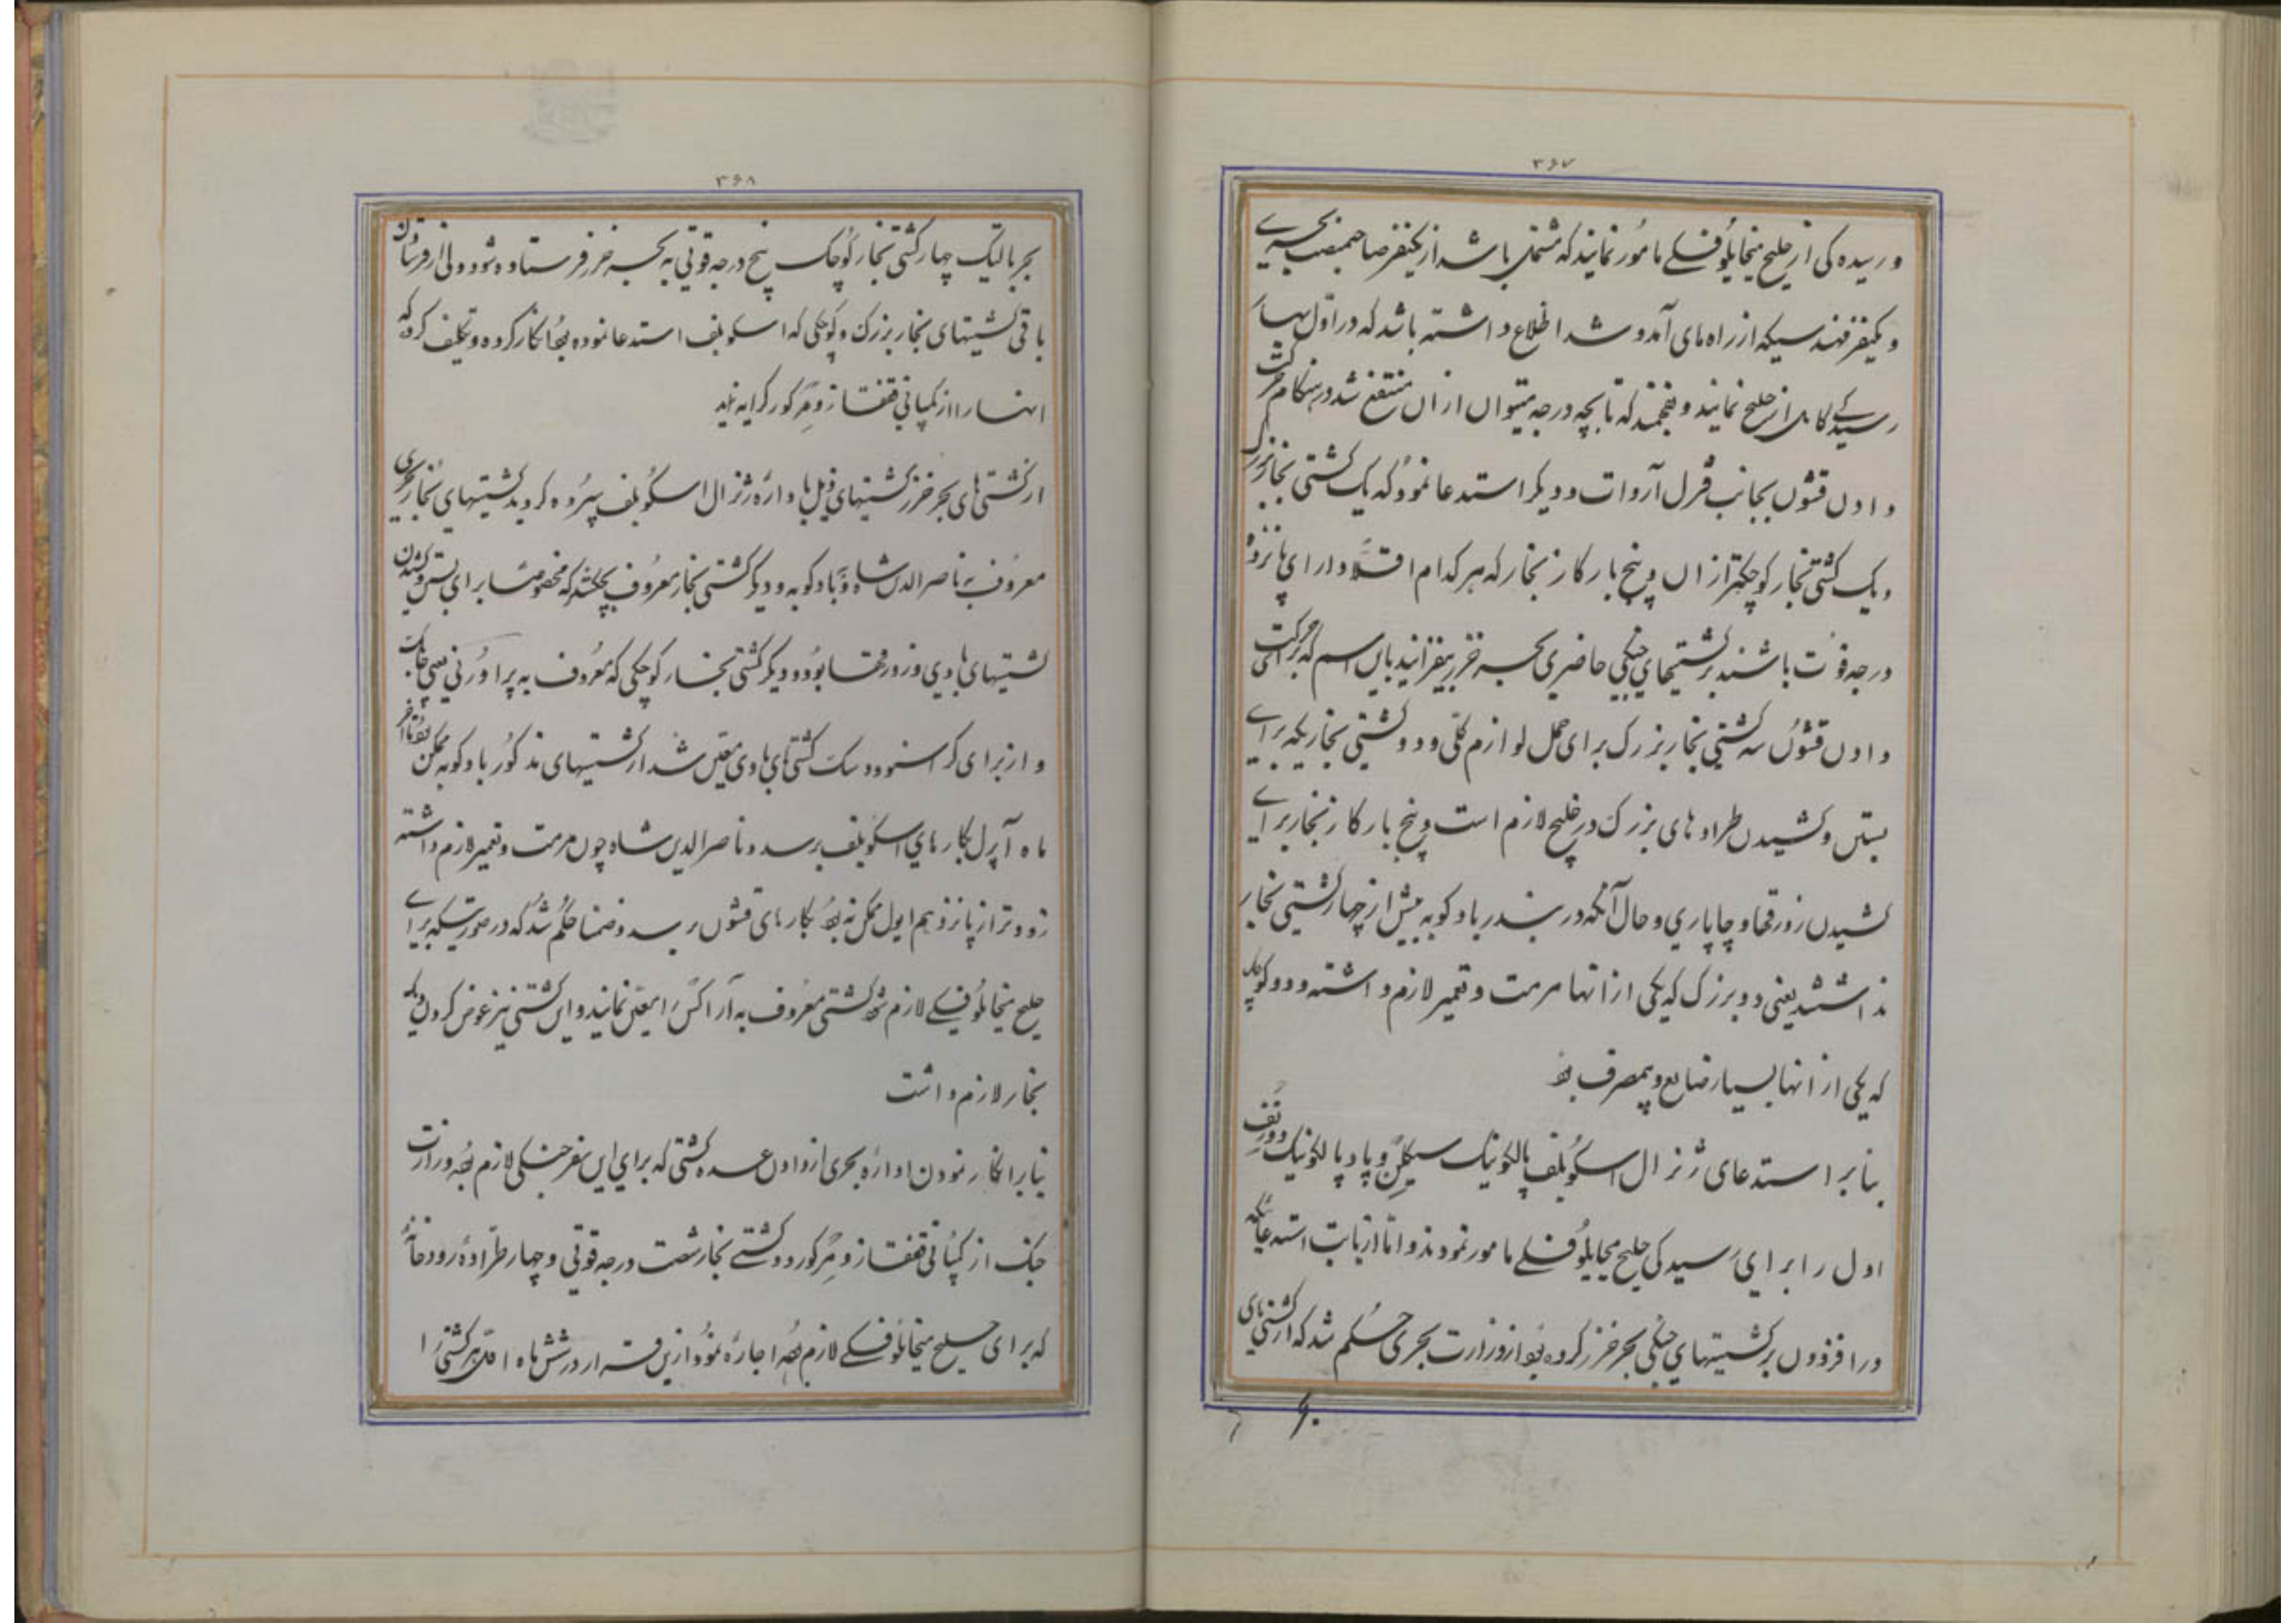 ۳۶۷
و رسیده کی از خلیج میخایلوفسکی مامور نمایند که مشتمل باشد از یکنفر صاحبمنصب بحریه
و یکنفر مهندسیکه از راه های آمد و شد اطلاع داشته باشد که در اول بهار
رسیدگی کامل از خلیج نمایند و بفهمند که تا بچه درجه میتوان از ان منتفع شد در هنگام حرکت
دادن قشون بجانب قزل آروات و دیگر استدعا نمود که یک کشتی بخار بزرگ
و یک کشتی بخار کوچکتر از ان و پنج بارکاز بخار که هر کدام اقلا دارای پانزده
درجه قوت باشند بر کشتیهای جنگی حاضری بحر خزر بیفزایند باین اسم که برای حرکت
دادن قشون سه کشتی بخار بزرگ برای حمل لوازم کلی و دو کشتی بخاریکه برای
بستن و کشیدن طراده های بزرگ در خلیج لازم است و پنج بارکاز بخار برای
کشیدن زورقها و چاپاری و حال آنکه در بندر بادکوبه بیش از چهار کشتی بخار
نداشتند یعنی دو بزرگ که یکی از انها مرمت و تعمیر لازم داشته و دو کوچک
که یکی از انها بسیار ضایع و بیمصرف بود
بنابر استدعای ژنرال اسکوبلف پالکونیک و پاد پالکونیک
اول را برای رسیدگی خلیج میخایلوفسکی مامور نمودند و اما از بابت استدعائیکه
در افزودن بر کشتیهای جنگی بحر خزر کرده بود از وزارت بحری حکم شد که از کشتی های
۳۶۸
بحر بالتیک چهار کشتی بخار کوچک پنج درجه قوتی به بحر خزر فرستاده شود ولی از فرستادن
باقی کشتیهای بخار بزرگ و کوچکی که اسکوبلف استدعا نموده بود انکار کرده و تکلیف کرد که
انها را از کمپانی قفقاز و مرکور کرایه نمایند
از کشتی های بحر خزر کشتیهای ذیل با داره ژنرال اسکوبلف سپرده گردید کشتیهای بخار بحری
معروف به ناصرالدین شاه و بادکوبه و دیگر کشتی بخار معروف که مخصوصا برای بستن و کشیدن
کشتیهای بادی و زورقها بود و دیگر کشتی بخار کوچکی که معروف به
و از برای کراسنوودسک کشتی های بادی معین شد از کشتیهای مذکور بادکوبه ممکن بود تا آخر
ماه آپرل بکارهای اسکوبلف برسد و ناصرالدین شاه چون مرمت و تعمیر لازم داشته
زودتر از پانزدهم ایول ممکن نه بود بکارهای قشون برسد و ضمنا حکم شد که در صورتیکه برای
خلیج میخایلوفسکی لازم شود کشتی معروف به آراکس را معین نمایند و این کشتی نیز عوض کردن دیگ
بخار لازم داشت
بنابر انکار نمودن اداره بحری از دادن عده کشتی که برای این سفر جنگی لازم بود وزارت
جنگ از کمپانی قفقاز و مرکور دو کشتی بخار شصت درجه قوتی و چهار طراده رودخانه
که برای خلیج میخایلوفسکی لازم بود اجاره نمود ازین قرار در شش ماه اقل هر کشتی را